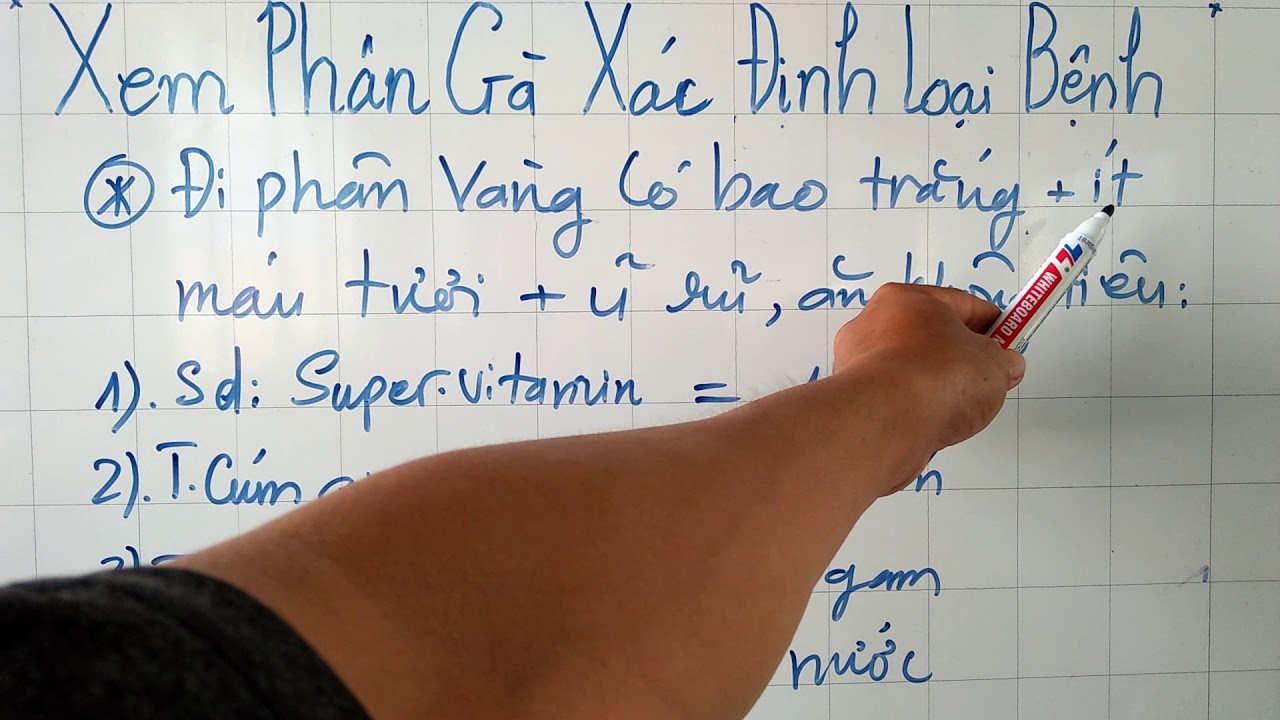 * Xem Phân Gà Xác Định Loại Bệnh *
* Đi phân Vàng Có bao trắng + ít
máu tươi + ũ rũ, ăn tiêu:
1). Sd: Super.vitamin =
2). T. Cúm
gam
nước
WHITEBOARD